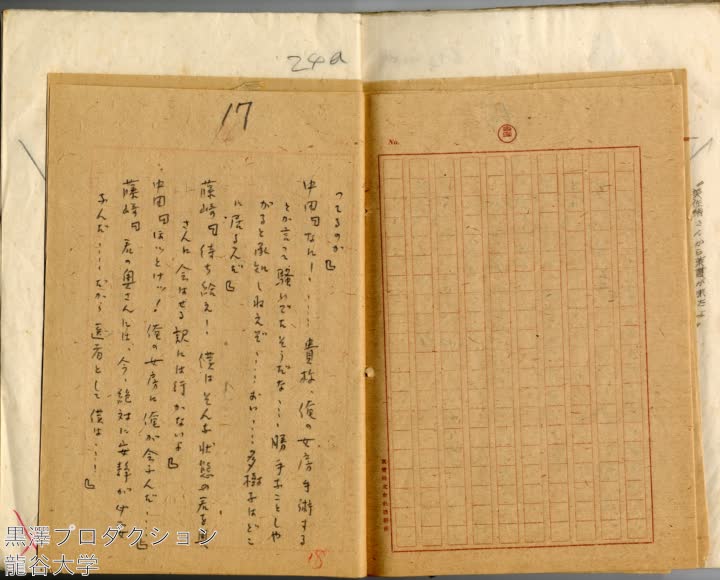 24a
17
つてるのか』
中田『なに!……貴様、俺の女房を手術する
とか言つて騒いでたそうだな……勝手なことしや
がると承知しねえぞ……おい……多樹子はどこ
に居るんだ』
藤崎『待ち給え! 僕はそんな状態の君を奥
さんに会はせる訳には行かないよ』
中田『ほッとけッ! 俺の女房に俺が会ふんだ……』
藤崎『君の奥さんには、今、絶対に安静が必要
なんだ……だから医者として僕は……』
18
No.
さんから葉書が来たよ。
黒澤プロダクション
龍谷大学